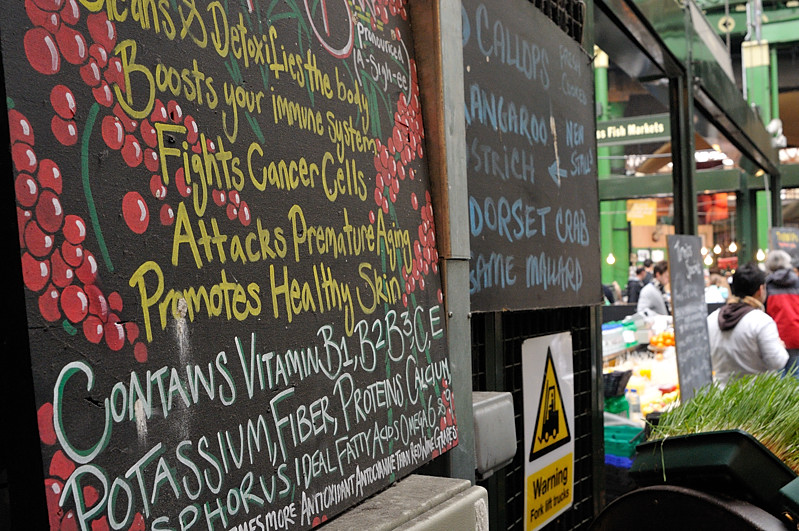 Cleans & Detoxifies the body
Boosts your immune system
Fights Cancer Cells
Attacks Premature Aging
Promotes Healthy Skin
Contains Vitamin B1, B2 B3, C, E
Potassium, Fiber, Proteins Calcium
sphorus Ideal Fatty Acids Omega 6, 8, 9
mes more Antioxidant Antiocyanine Than Red Wine Grapes
pronounced
A-Sigh-ee
CALLOPS
KANGAROO
OSTRICH
NEW
STALL
DORSET CRAB
GAME MALLARD
Fish Markets
Warning
Fork lift trucks